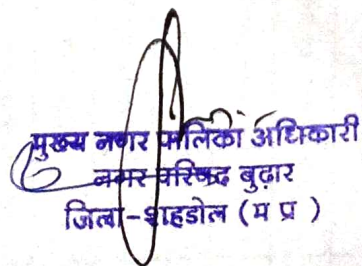 मुख्य नगर पालिका अधिकारी
नगर परिषद बुढ़ार
जिला-शहडोल (म प्र )